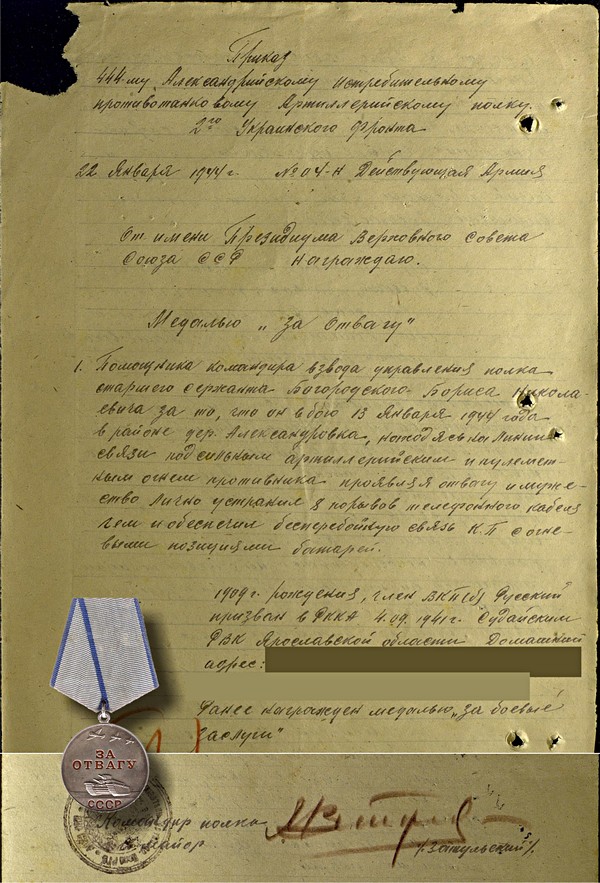 Приказ
444-му Александрийскому истребительному
противотанковому Артиллерийскому полку.
2го Украинского Фронта
22 Января 1944 г. №04-н Действующая Армия
От имени Президиума Верховного Совета
Союза ССР награждаю.
Медалью „за отвагу"
1. Помощника командира взвода управления полка
старшего сержанта Богородского Бориса Никола-
евича за то, что он в бою 13 Января 1944 года
в районе дер. Александровка, находясь на линии
связи под сильным артиллерийским и пулемет-
ным огнем противника проявляя отвагу и муже-
ство лично устранил 8 порывов телефонного кабеля
чем и обеспечил бесперебойную связь К.П с огне-
выми позициями батарей.
1909 г. рождения, член ВКП(б) Русский
призван в РККА 4.09.1941 г. Судайским
РВК Ярославской области Домашний
адрес:
Ранее награжден медалью „за боевые
заслуги"
ЗА
ОТВАГУ
СССР
Командир полка
Майор
/Затульский/